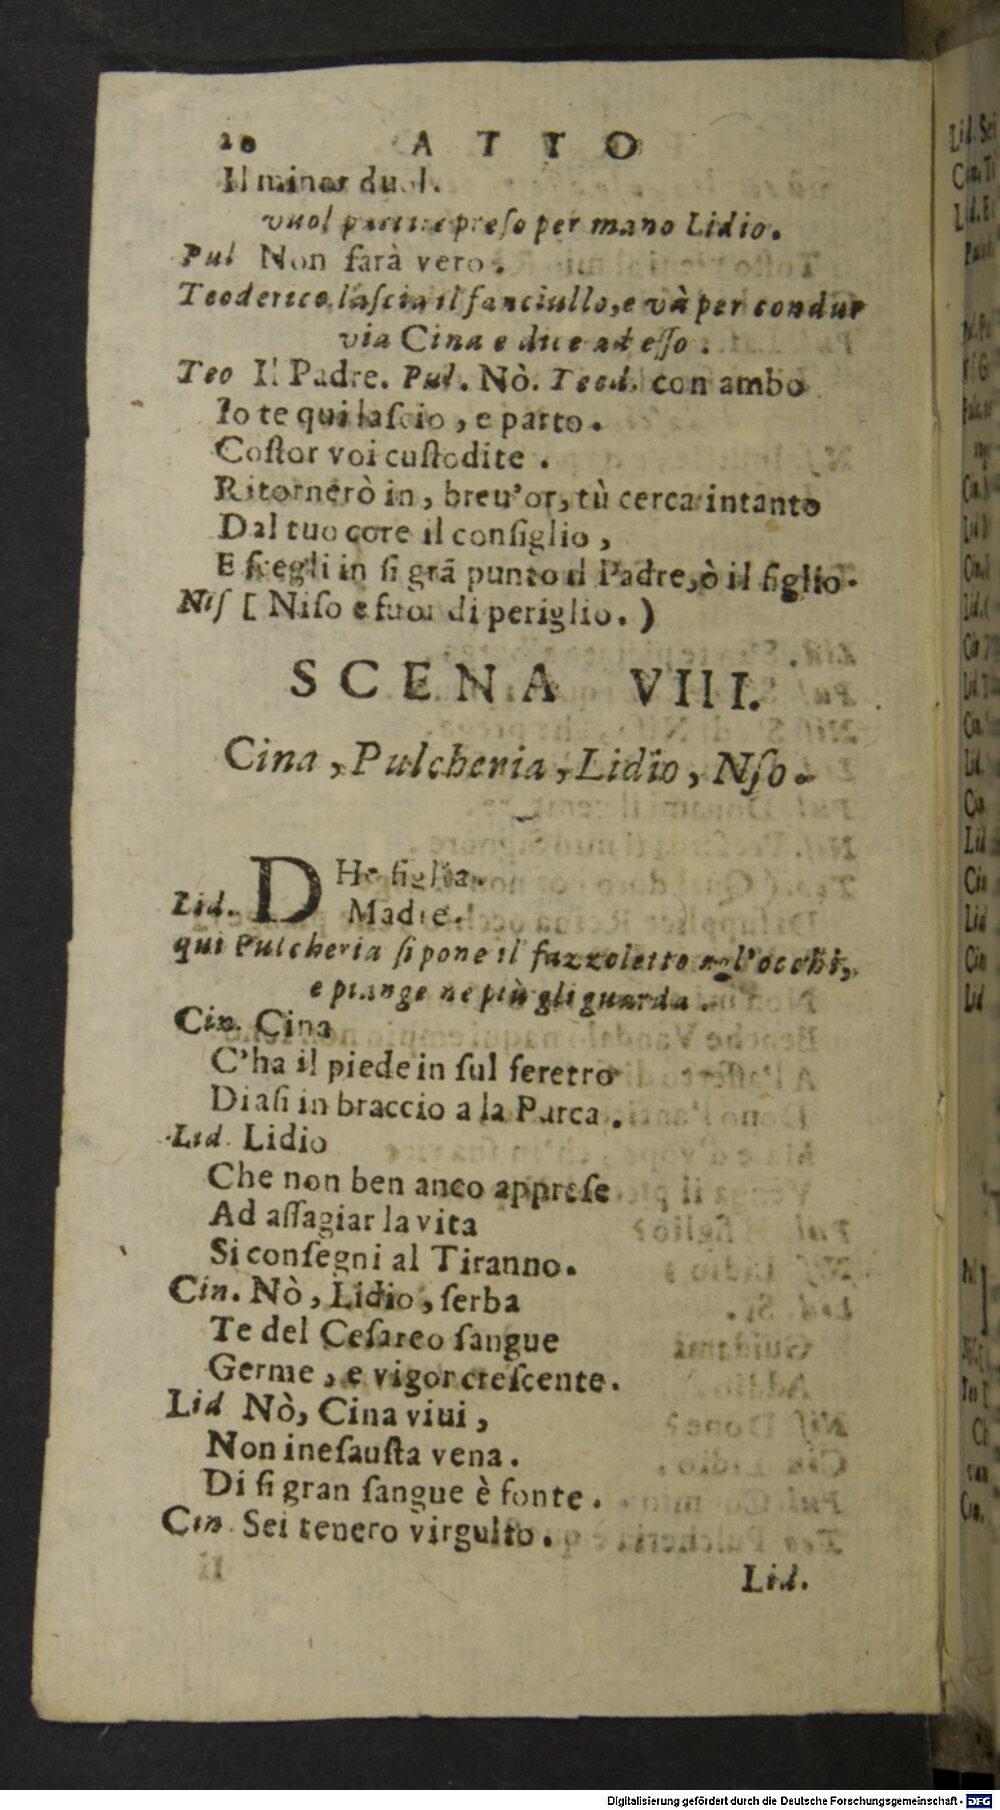 20 ATTO
Il minor duol.
vuol partire preſo per mano Lidio.
Pul Non ſarà vero.
Teoderico laſcia il fanciullo, e và per condur
via Cina e dice ad eſſo.
Teo Il Padre. Pul. Nò. Teod. con ambo
Io te qui laſcio, e parto.
Coſtor voi cuſtodite.
Ritornerò in, breu'or, tù cerca intanto
Dal tuo core il conſiglio,
E ſcegli in ſi grã punto il Padre, ò il figlio.
Niſ [ Niſo e fuor di periglio. )
SCENA VIII.
Cina, Pulcheria, Lidio, Nſo.
DHe figlia.
Lid. Madre.
qui Pulcheria ſi pone il fazzoletto agl'occhi,
e piange ne più gli guarda.
Cin. Cina
C'ha il piede in ſul feretro
Diaſi in braccio a la Parca.
Lid. Lidio
Che non ben anco appreſe
Ad aſſagiar la vita
Si conſegni al Tiranno.
Cin. Nò, Lidio, ſerba
Te del Ceſareo ſangue
Germe, e vigor creſcente.
Lid Nò, Cina viui,
Non ineſauſta vena.
Di ſi gran ſangue è fonte.
Cin. Sei tenero virgulto.
Lid.
Digitalisierung gefördert durch die Deutsche Forschungsgemeinschaft - DFG